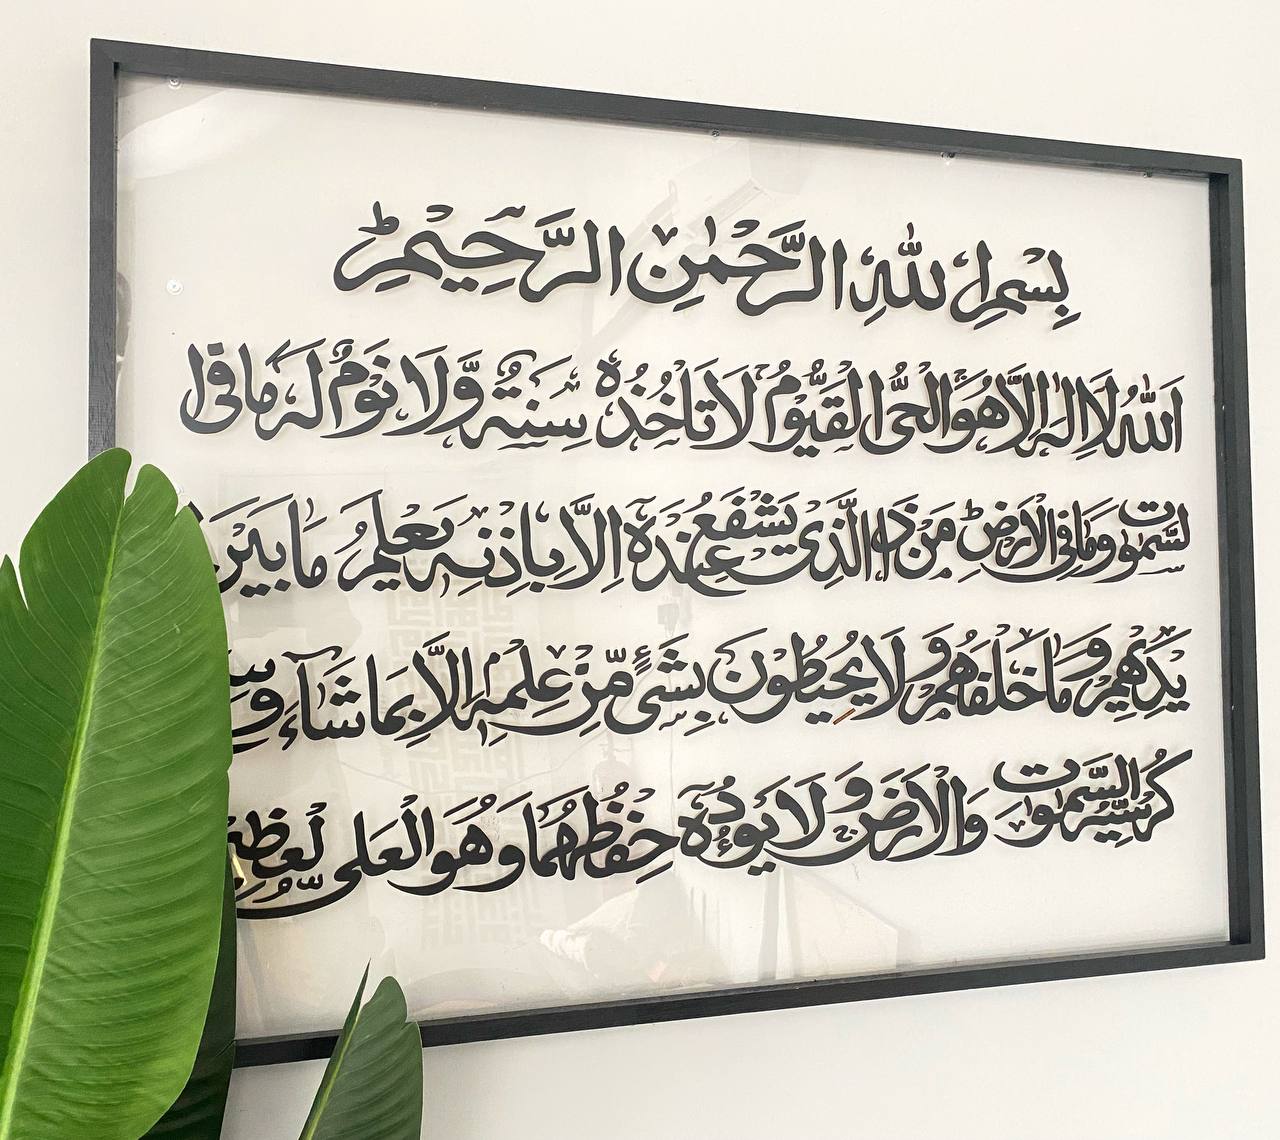 بِسْمِ اللهِ الرَّحْمٰنِ الرَّحِيْمِ
اَللهُ لَا اِلٰهَ اِلَّا هُوَ الْحَيُّ الْقَيُّوْمُ لَا تَاْخُذُهٗ سِنَةٌ وَّلَا نَوْمٌ لَهٗ مَا فِى ا
لسَّمٰوٰتِ وَمَا فِى الْاَرْضِ مَنْ ذَا الَّذِىْ يَشْفَعُ عِنْدَهٗٓ اِلَّا بِاِذْنِهٖ يَعْلَمُ مَا بَيْنَ
يْدِيْهِمْ وَمَا خَلْفَهُمْ وَلَا يُحِيْطُوْنَ بِشَىْءٍ مِّنْ عِلْمِهٖٓ اِلَّا بِمَا شَآءَ وَسِ
كُرْسِيُّهُ السَّمٰوٰتِ وَالْاَرْضَ وَلَا يَـُٔوْدُهٗ حِفْظُهُمَا وَهُوَ الْعَلِىُّ الْعَظِيْ